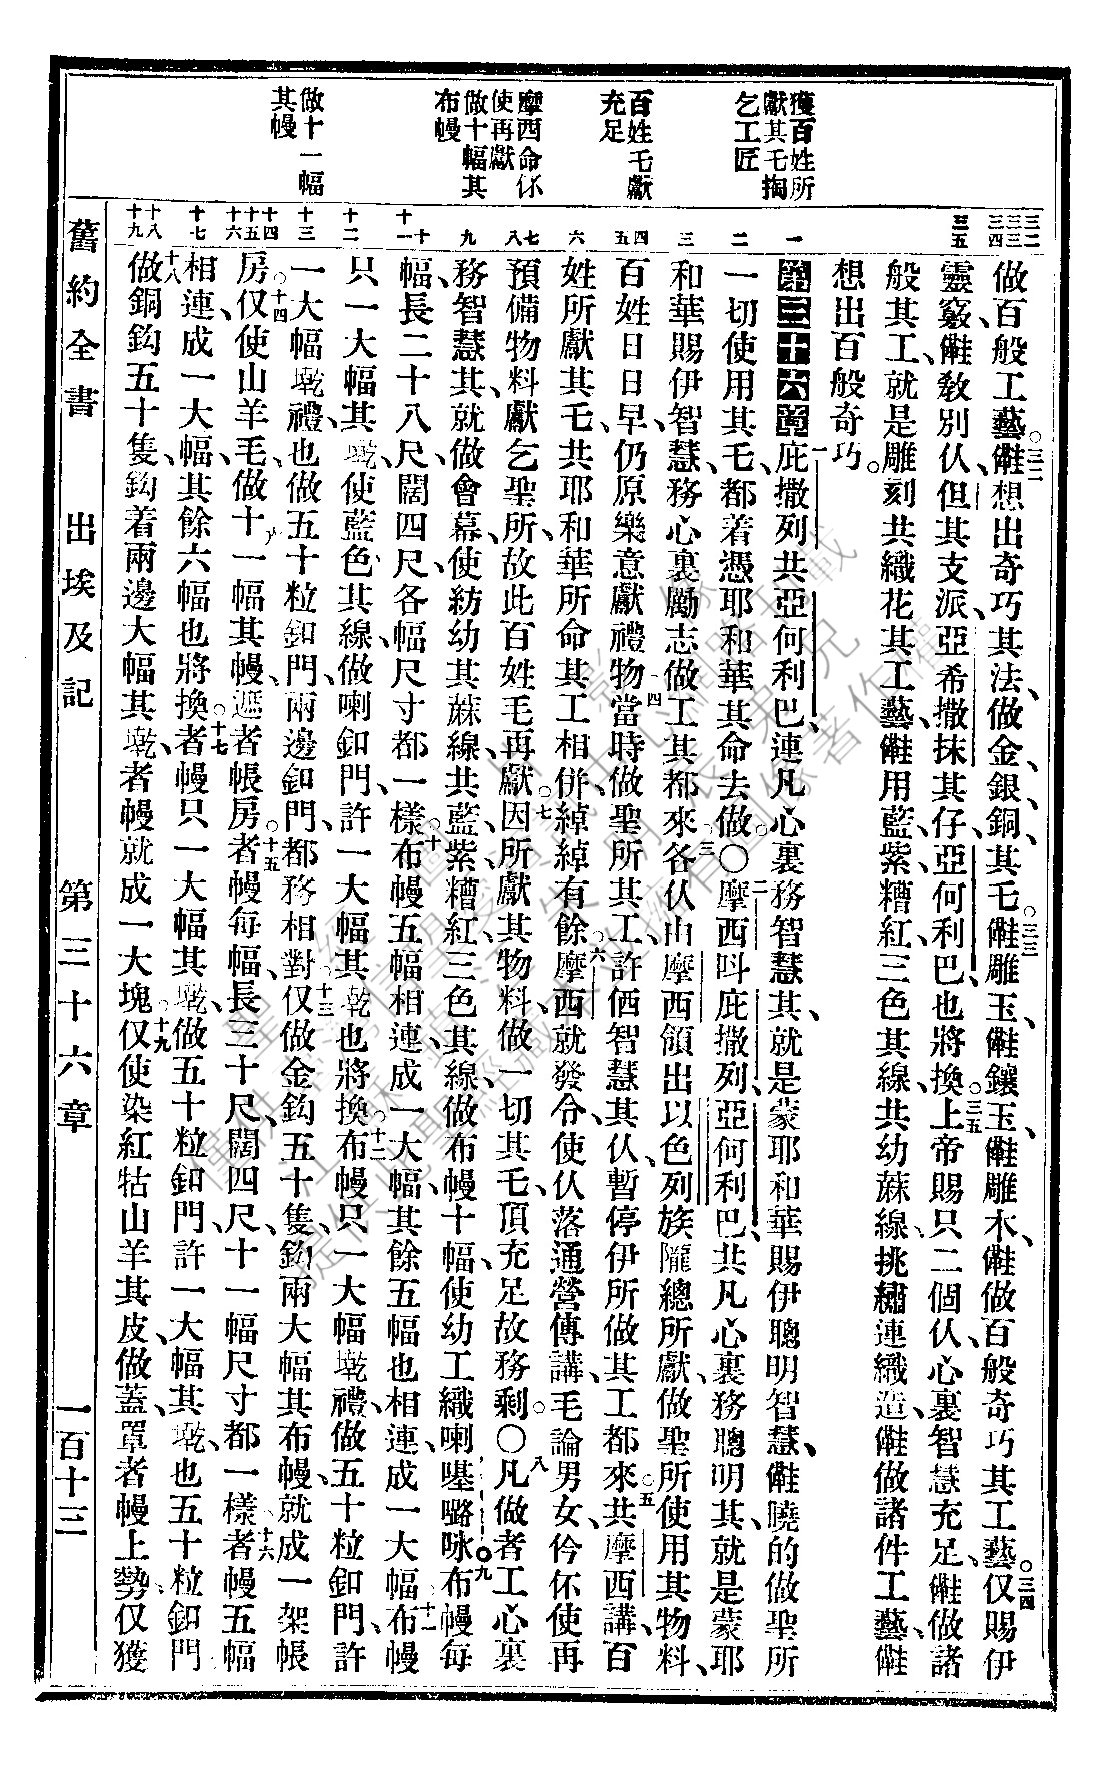 獲百姓所
獻其乇掏
乞工匠
百姓乇獻
充足
摩西命伓
使再獻
做十幅其
布幔
做十一幅
其幔
三二
三三
三四
三五
一
二
三
四
五
六
七
八
九
十
十一
十二
十三
十四
十五
十六
十七
十八
十九
做百般工藝。三二㑚想出奇巧其法、做金、銀、銅、其乇。三三㑚雕玉、㑚鑲玉、㑚雕木、㑚做百般奇巧其工藝。三四仅賜伊
靈竅、㑚教別仈、但其支派、亞希撒抹其仔、亞何利巴也將換。三五上帝賜只二個仈、心裏智慧充足、㑚做諸
般其工、就是雕刻共織花其工藝、㑚用藍、紫、糟紅、三色其線、共幼蔴線、挑繡連織造、㑚做諸件工藝、㑚
想出百般奇巧。
第三十六章 一庇撒列共亞何利巴、連凡心裏務智慧其、就是蒙耶和華賜伊聰明智慧、㑚曉的做聖所
一切使用其乇、都着憑耶和華其命去做。○二摩西叫庇撒列、亞何利巴、共凡心裏務聰明其、就是蒙耶
和華賜伊智慧、務心裏勵志做工其都來。三各仈由摩西領出以色列族隴總所獻、做聖所使用其物料、
百姓日日早、仍原樂意獻禮物。四當時做聖所其工、許価智慧其仈、暫停伊所做其工、都來。五共摩西講、百
姓所獻其乇、共耶和華所命其工相併、綽綽有餘。六摩西就發令、使仈落通營傳講、毛論男女、伶伓使再
預備物料獻乞聖所、故此百姓毛再獻。七因所獻其物料、做一切其乇、頂充足故務剩。○八凡做者工心裏
務智慧其、就做會幕、使紡幼其蔴線、共藍、紫、糟紅、三色其線、做布幔十幅、使幼工織喇㗷𡀔咏。九布幔每
幅、長二十八尺、闊四尺、各幅尺寸都一樣。十布幔五幅相連成一大幅、其餘五幅也相連、成一大幅。十一布幔
只一大幅其墘、使藍色其線、做喇釦門、許一大幅其墘也將換。十二布幔只一大幅墘禮、做五十粒釦門、許
一大幅墘禮也做五十粒釦門、兩邊釦門、都務相對。十三仅做金鈎五十隻、鈎兩大幅其布幔、就成一架帳
房。○十四仅使山羊毛、做十一幅其幔、遮者帳房。十五者幔每幅、長三十尺、闊四尺、十一幅尺寸都一樣。十六者幔五幅
相連、成一大幅、其餘六幅也將換。十七者幔只一大幅其墘、做五十粒釦門、許一大幅其墘、也五十粒釦門。
十八做銅鈎五十隻、鈎着兩邊大幅其墘、者幔就成一大塊。十九仅使染紅牯山羊其皮、做蓋、罩者幔上勢、仅獲
舊約全書 出埃及記 第三十六章 一百十三